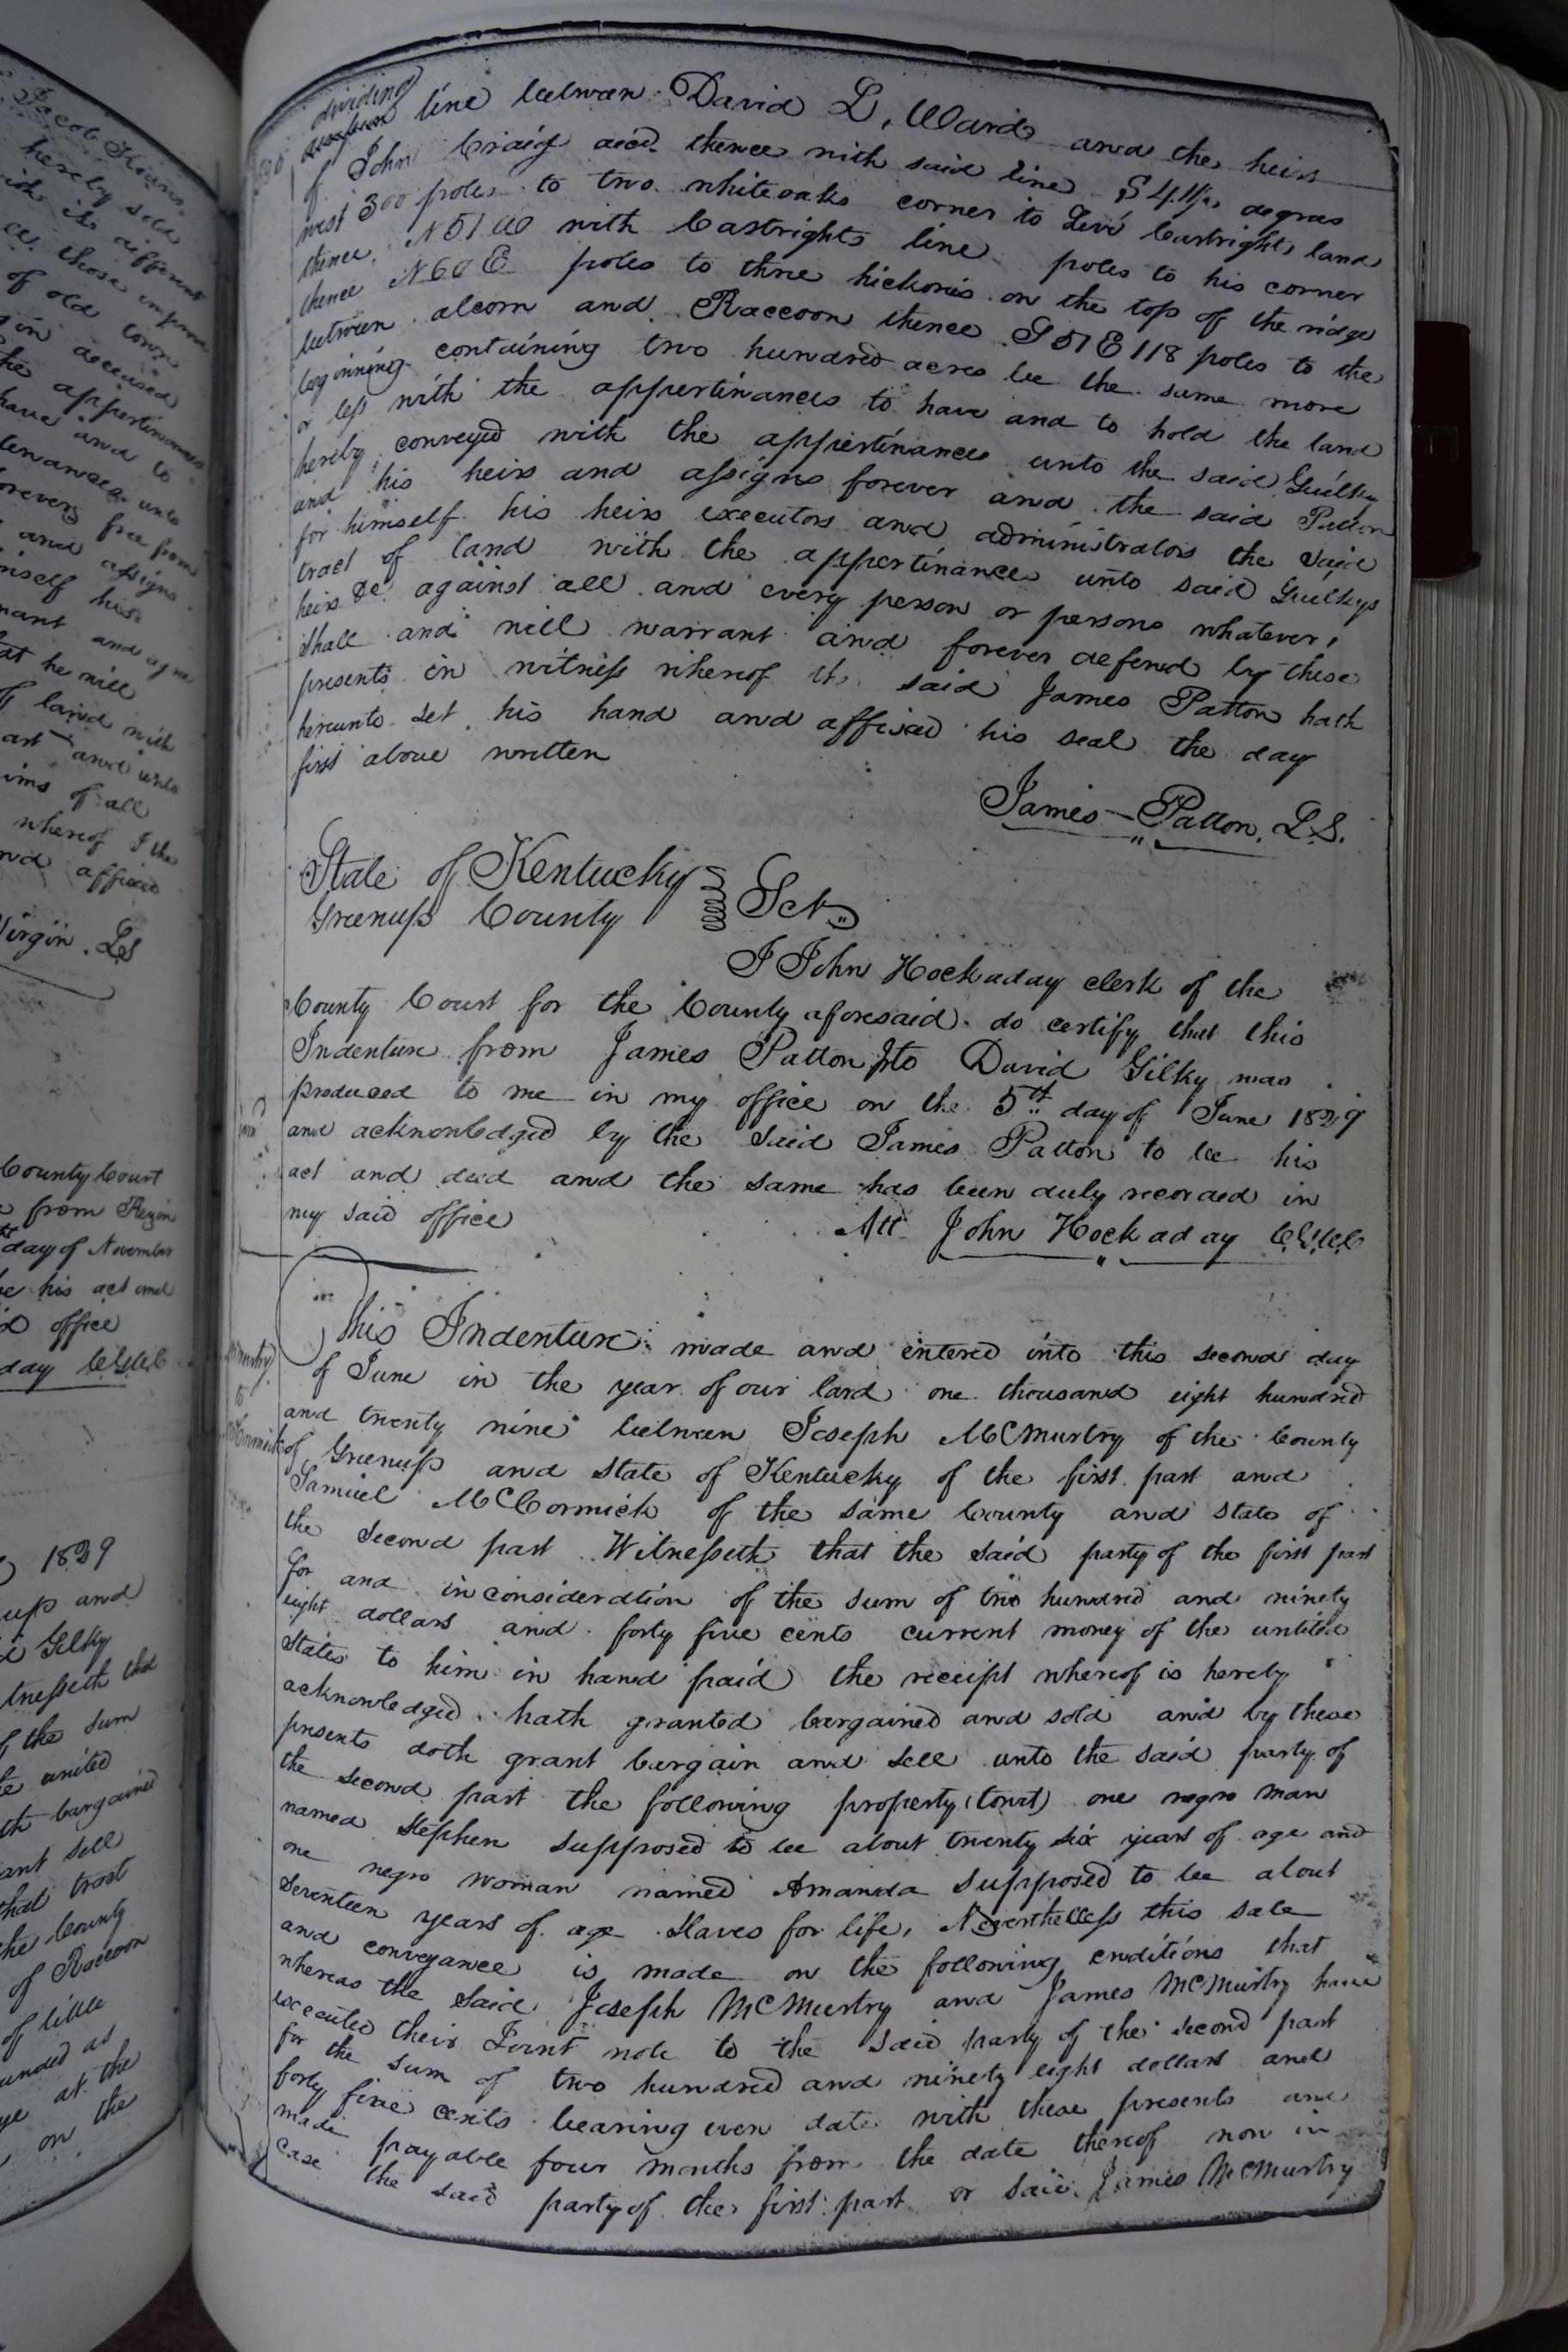 Jacob Kouns
hereby sold
its different
those
of old town
in deceased
the appertinances
have and to
unto
forever free from
and assigns
himself his
and agree
at he will
of land with
and unto
of all
whereof I the
and affixed
Virgin. LS
County Court
from Rezin
day of November
be his act and
office
day C.G.C.C.
1829
up and
Gilky
tnesseth that
of the sum
united
th bargained
ant sell
that tract
the County
of Raccoon
of little
at the
on the
dividing
line between David L, Ward and the heirs
of John Craig decd. thence with said line S 41½ degrees
west 300 poles to two whiteoaks corner to Levi Cartrights land
thence N 51 W with Cartrights line poles to his corner
thence N 60 E poles to three hickories on the top of the ridge
between alcorn and Raccoon thence S 51 E 118 poles to the
beginning containing two hundred acres be the same more
or less with the appertinances to have and to hold the land
hereby conveyed with the appertinances unto the said Guilky
and his heirs and assigns forever and the said Patton
for himself his heirs executors and administrators the said
tract of land with the appertinances unto said Guilkys
heirs &c against all and every person or persons whatever,
shall and will warrant and forever defend by these
presents in witness whereof the said James Patton hath
hereunto set his hand and affixed his seal the day
first above written
James Patton, L.S.
State of Kentucky
Greenup County Sct
I John Hockaday clerk of the
County Court for the County aforesaid do certify that this
Indenture from James Patton to David Gilky was
produced to me in my office on the 5th day of June 1829
and acknowledged by the said James Patton to be his
act and deed and the same has been duly recorded in
my said office
Att John Hockaday C.G.C.C.
McMurtry
to
McCormick
This Indenture made and entered into this second day
of June in the year of our lard one thousand eight hundred
and twenty nine between Joseph McMurtry of the County
of Greenup and State of Kentucky of the first part and
Samuel McCormick of the same County and state of
the second part Witnesseth that the said party of the first part
for and in consideration of the sum of two hundred and ninety
eight dollars and forty five cents current money of the united
States to him in hand paid the receipt whereof is hereby
acknowledged hath granted bargained and sold and by these
presents doth grant bargain and sell unto the said party of
the second part the following property (towit) one negro man
named Stephen supposed to be about twenty six years of age and
one negro woman named Amanda supposed to be about
seventeen years of age Slaves for life, Nevertheless this sale
and conveyance is made on the following cnditions that
whereas the said Joseph McMurtry and James McMurtry have
executed their Joint note to the said party of the second part
for the sum of two hundred and ninety eight dollars and
forty five cents bearing even date with these presents and
made payable four months from the date thereof now in
case the said party of the first part or said James McMurtry